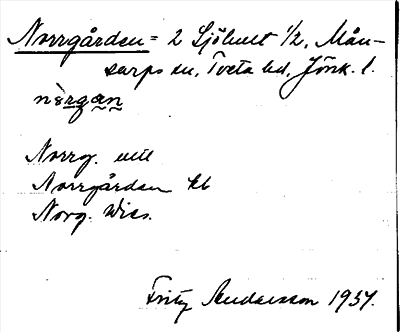 Norrgården = 2 Sjöhult 1/2, Mån-
sarps sn, Tveta hd, Jönk. l.
nòrgan
Norrg. utt
Norrgården kb
Norg. Wiss.
Fritz Andersson 1937.